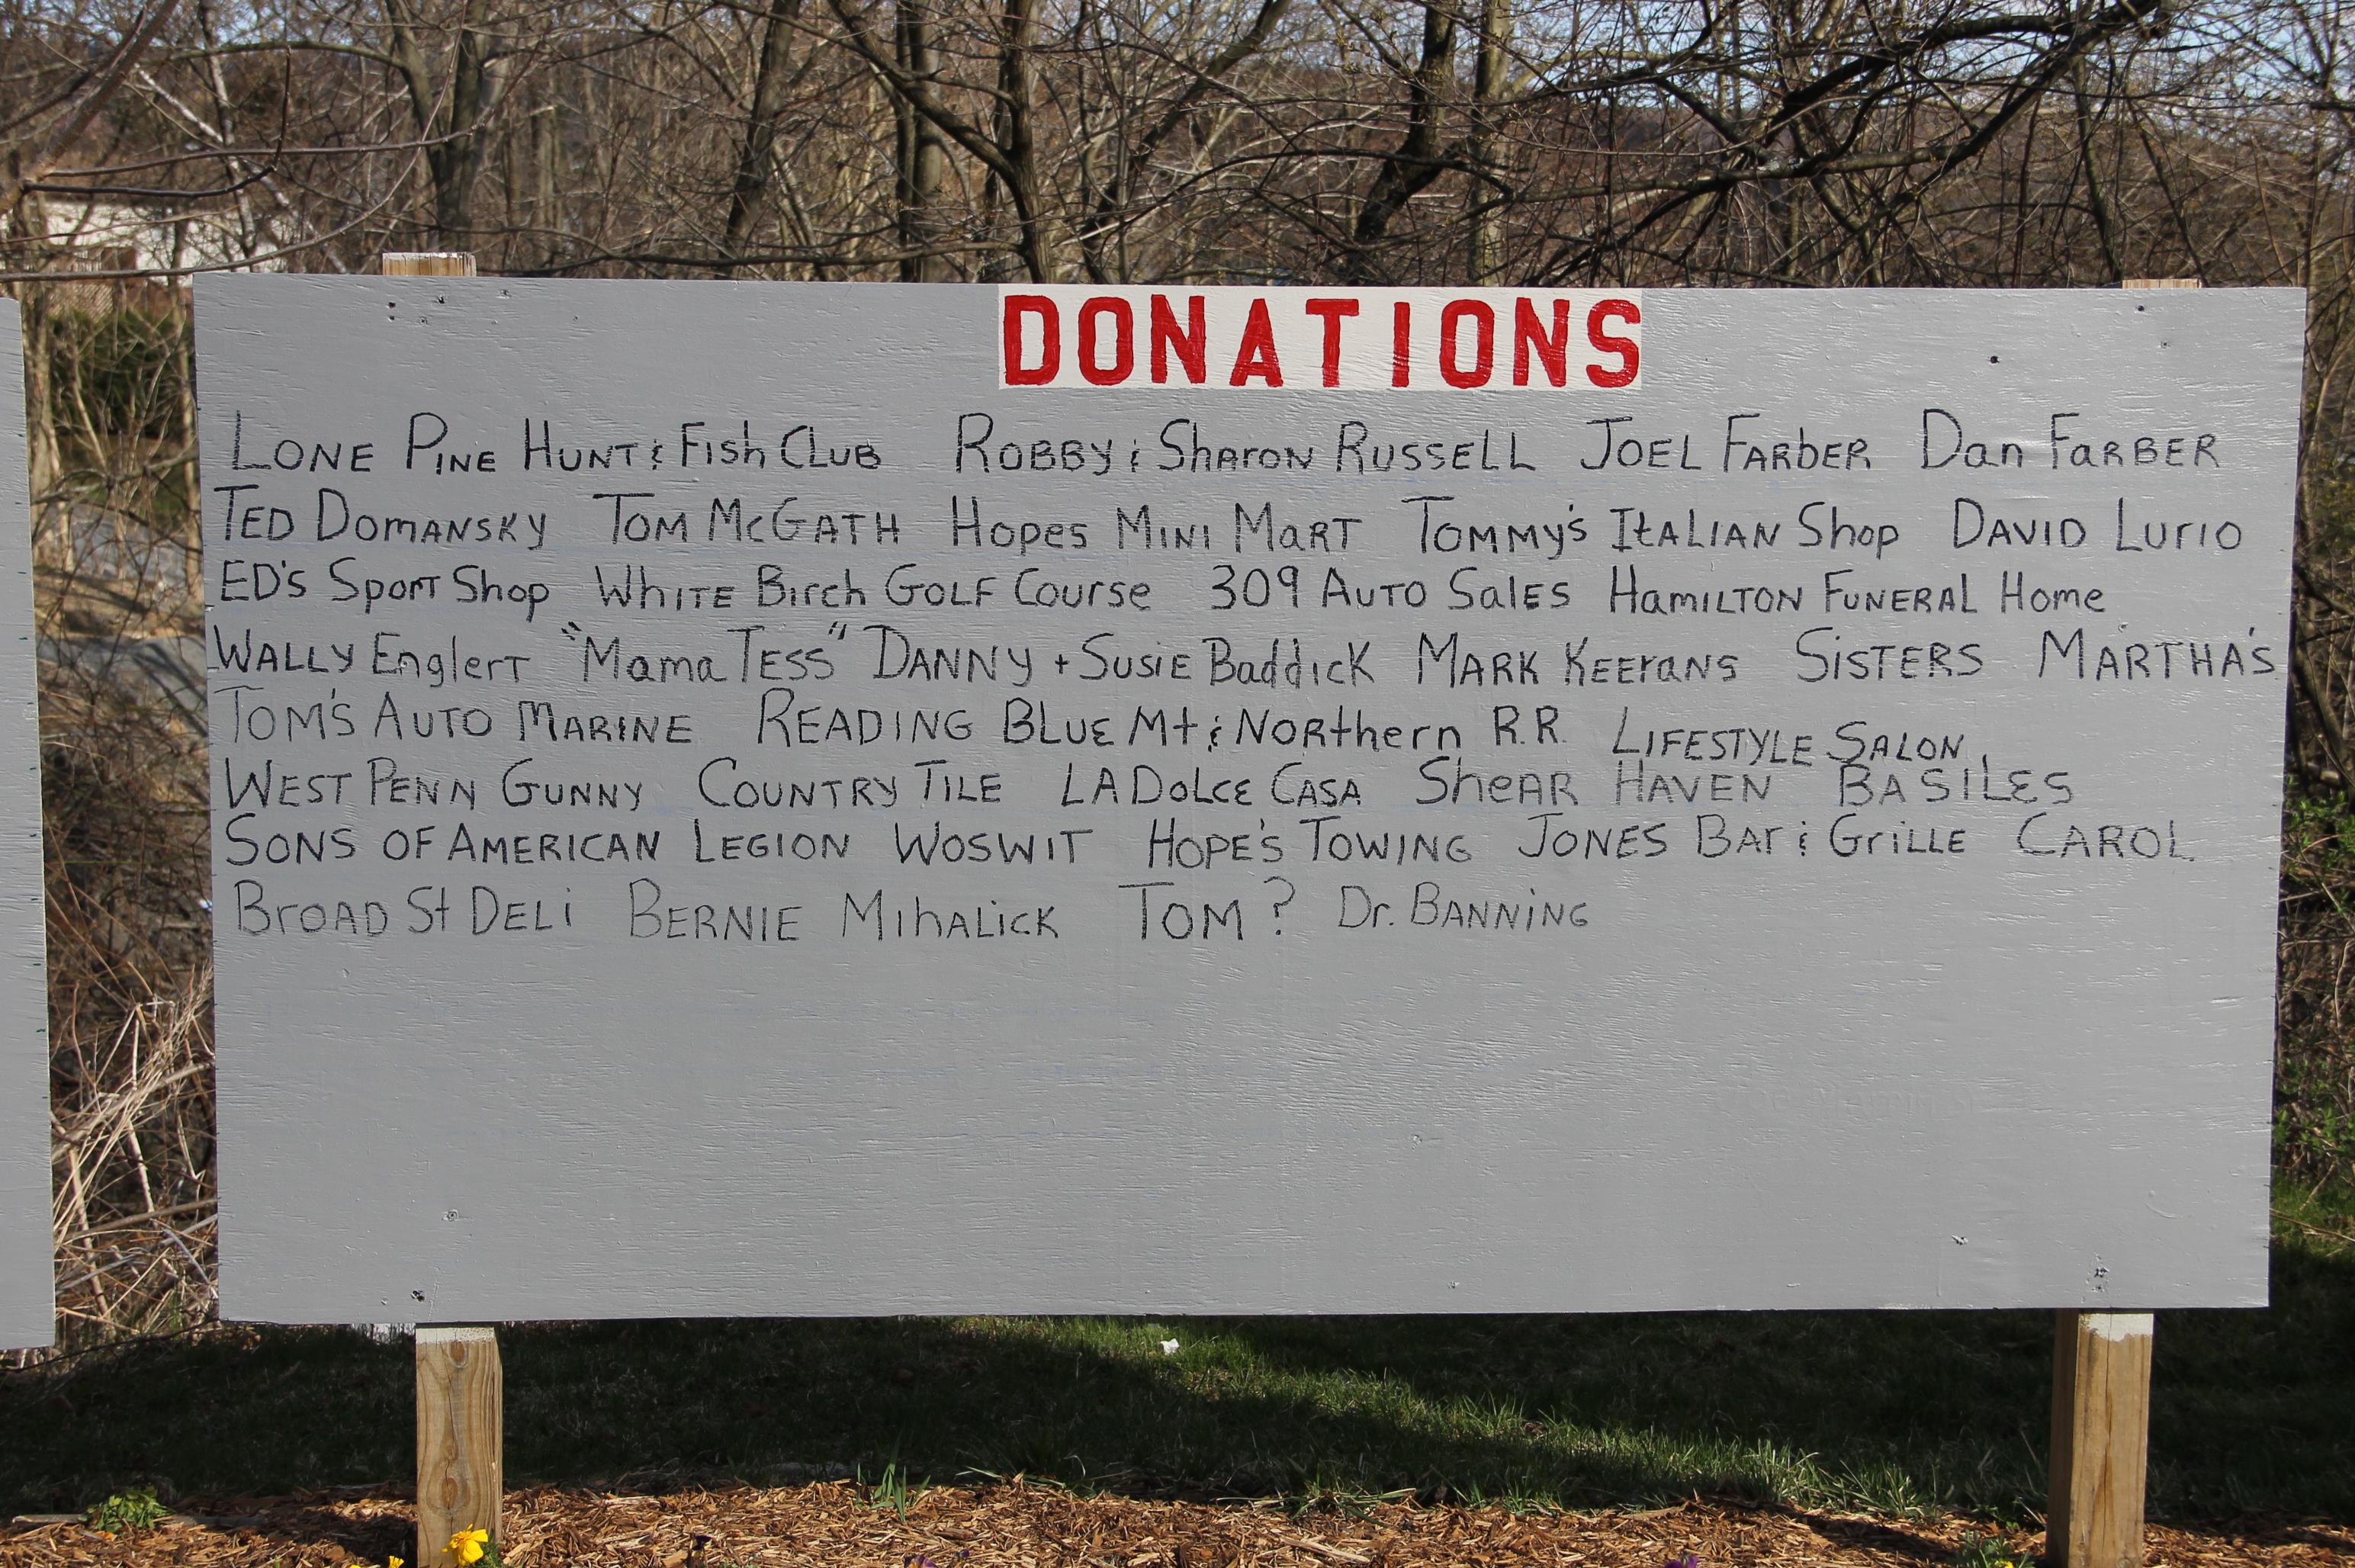 DONATIONS
LONE PINE HUNT & FISh CLUB ROBBY & ShARON RUSSELL JOEL FARbER Dan FARBER
TED DOMANSKY TOM McGATH Hopes MINI MART TOMMy's ItALIAN Shop DAVID Lurio
ED'S Sport Shop WhITE Birch GOLF Course 309 AUTO SalES HamILTON FUNERAL Home
WALLY Englert "Mama TESS" DANNY + SUSIE BaddicK MARK KEErans SiSTERS MARTHA'S
TOM'S AUTO MARINE READING BLUE Mt & NORthern R.R. LIFESTYLE SALON
WEST PENN GUNNY COUNTRY TILE LA DOLCE CASA ShEAR HAVEN BASILES
SONS OF AMERICAN LEGION WOSWIT HOPE'S TOWING JONES BAr & GriLLE CAROL
BrOAD St DELi BERNIE MihALick TOM ? Dr. BANNiNG